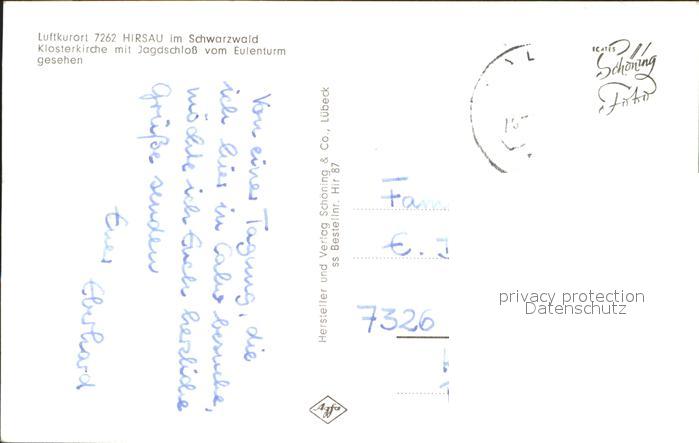 Luftkurort 7262 HIRSAU im Schwarzwald
Klosterkirche mit Jagdschloß vom Eulenturm
gesehen
Von einer Tagung, die
ich hier in Calw besuche,
möchte ich Euch herzliche
Grüße senden
Euer Eberhard
Hersteller und Verlag Schöning & Co., Lübeck
ss Bestellnr. Hir 87
Schöning
Foto
Fam
E.
7326
privacy protection
Datenschutz
Agfa